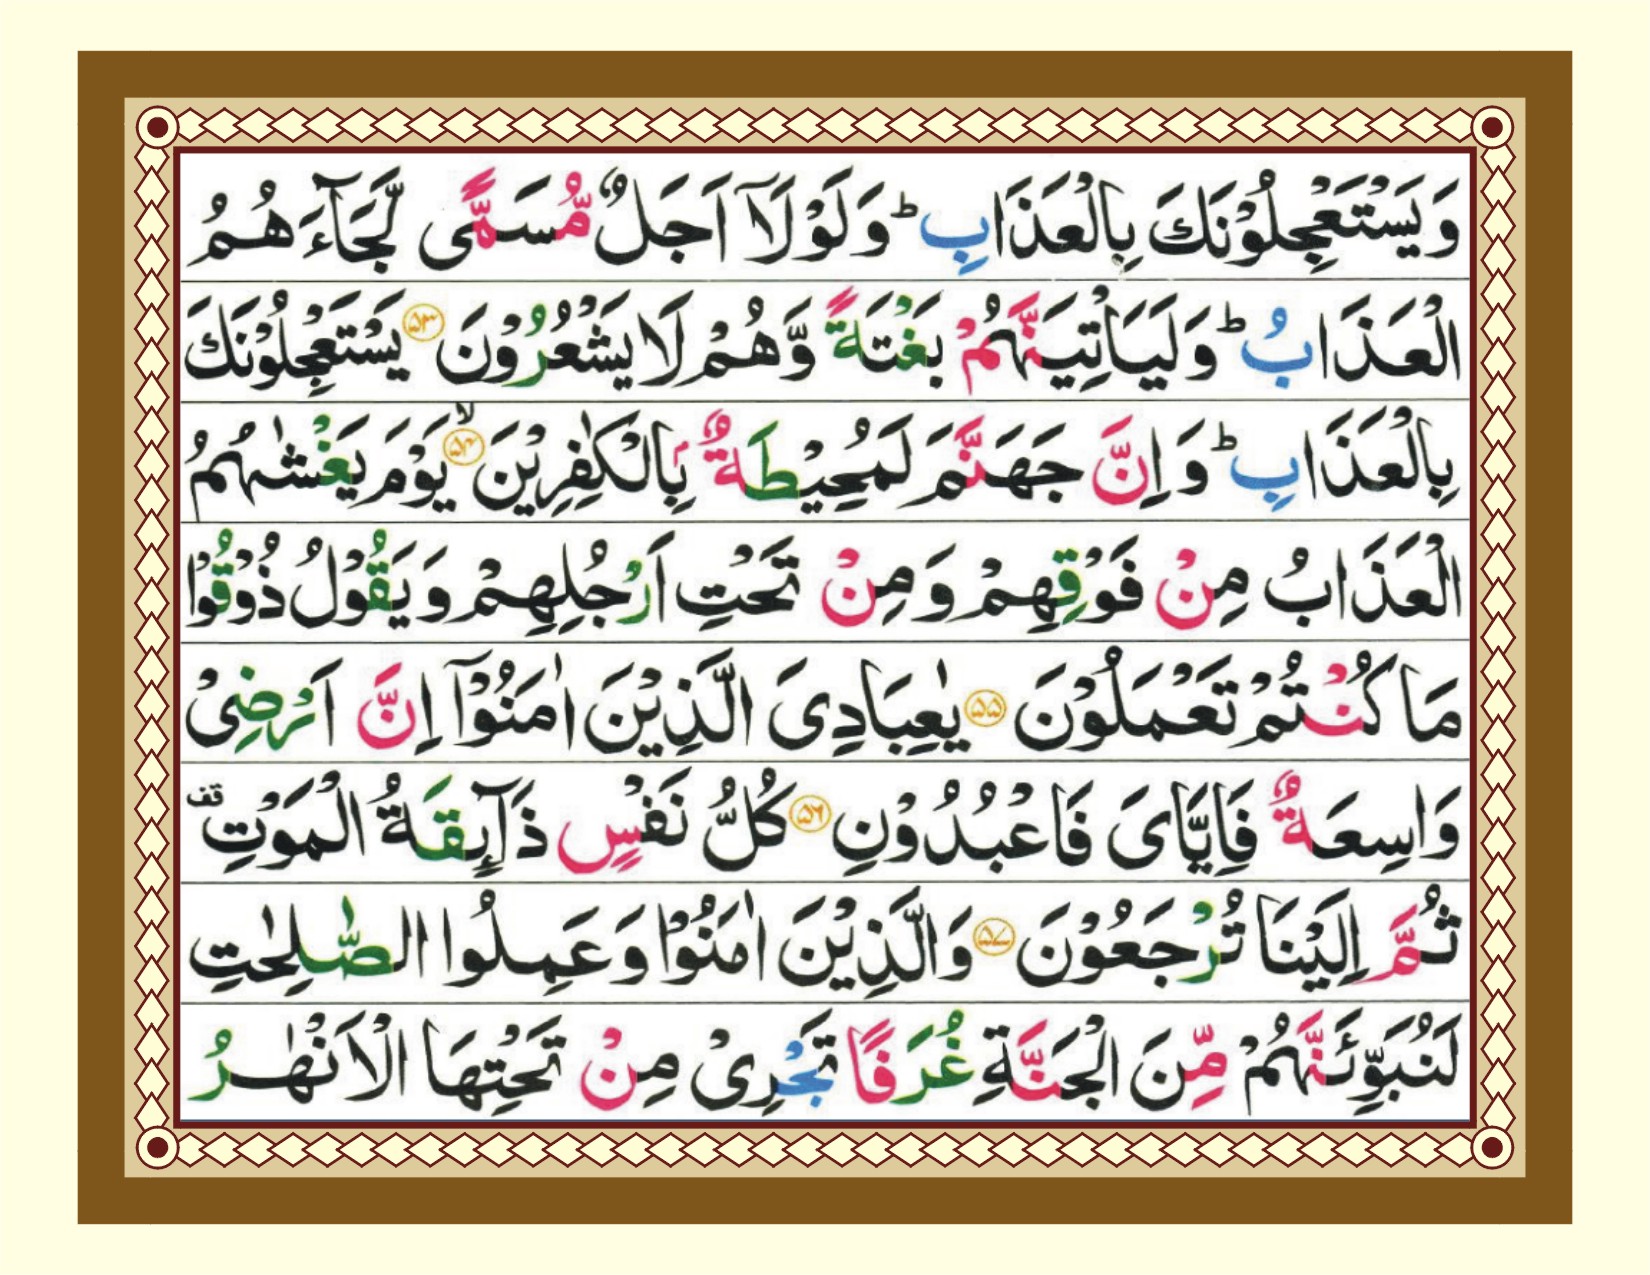 وَيَسْتَعْجِلُوْنَكَ بِالْعَذَابِ ؕ وَلَوْلَاۤ اَجَلٌ مُّسَمًّى لَّجَآءَهُمُ
الْعَذَابُ ؕ وَلَيَاْتِيَنَّهُمْ بَغْتَةً وَّهُمْ لَا يَشْعُرُوْنَ ۵۳ يَسْتَعْجِلُوْنَكَ
بِالْعَذَابِ ؕ وَاِنَّ جَهَنَّمَ لَمُحِيْطَةٌۢ بِالْكٰفِرِيْنَ ۙ۵۴ يَوْمَ يَغْشٰىهُمُ
الْعَذَابُ مِنْ فَوْقِهِمْ وَمِنْ تَحْتِ اَرْجُلِهِمْ وَيَقُوْلُ ذُوْقُوْا
مَا كُنْتُمْ تَعْمَلُوْنَ ۵۵ يٰعِبَادِىَ الَّذِيْنَ اٰمَنُوْۤا اِنَّ اَرْضِىْ
وَاسِعَةٌ فَاِيَّاىَ فَاعْبُدُوْنِ ۵۶ كُلُّ نَفْسٍ ذَآئِقَةُ الْمَوْتِ قف
ثُمَّ اِلَيْنَا تُرْجَعُوْنَ ۵۷ وَالَّذِيْنَ اٰمَنُوْا وَعَمِلُوا الصّٰلِحٰتِ
لَنُبَوِّئَنَّهُمْ مِّنَ الْجَنَّةِ غُرَفًا تَجْرِىْ مِنْ تَحْتِهَا الْاَنْهٰرُ